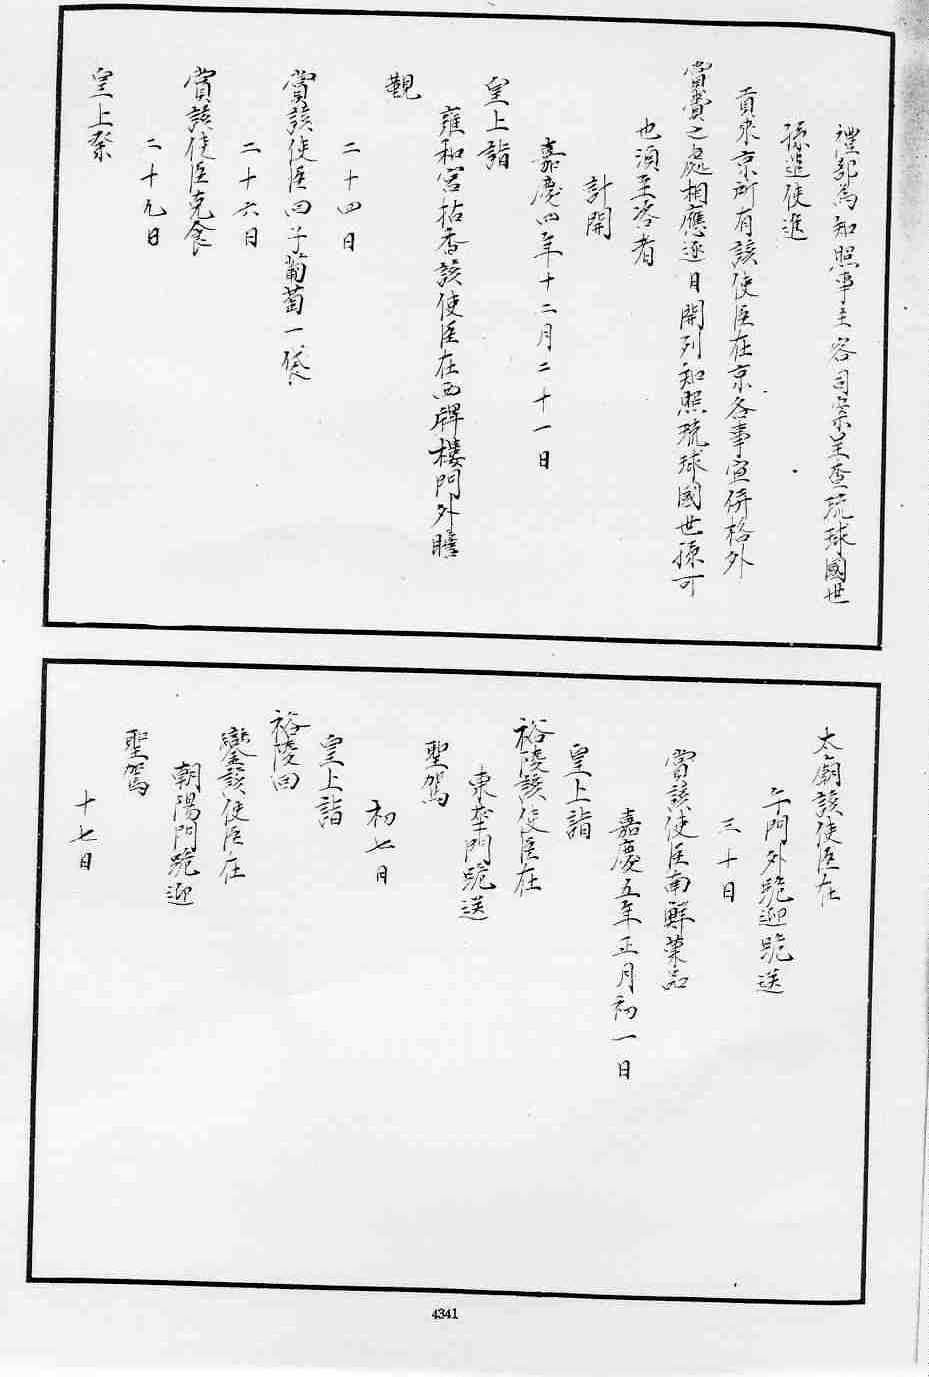 禮部為知照事主客司案呈查琉球國世
孫遣使進
貢來京所有該使臣在京各事宜併格外
賞賚之處相應逐日開列知照琉球國世孫可
也須至咨者
計開
嘉慶四年十二月二十一日
皇上詣
雍和宮拈香該使臣在西牌樓門外瞻
觀
二十四日
賞該使臣回子葡萄一袋
二十六日
賞該使臣克食
二十九日
皇上祭
太廟該使臣在
午門外跪迎跪送
三十日
賞該使臣南鮮菓品
嘉慶五年正月初一日
皇上詣
裕陵該使臣在
東華門跪送
聖駕
初七日
皇上詣
裕陵回
鑾該使臣在
朝陽門跪迎
聖駕
十七日
4341